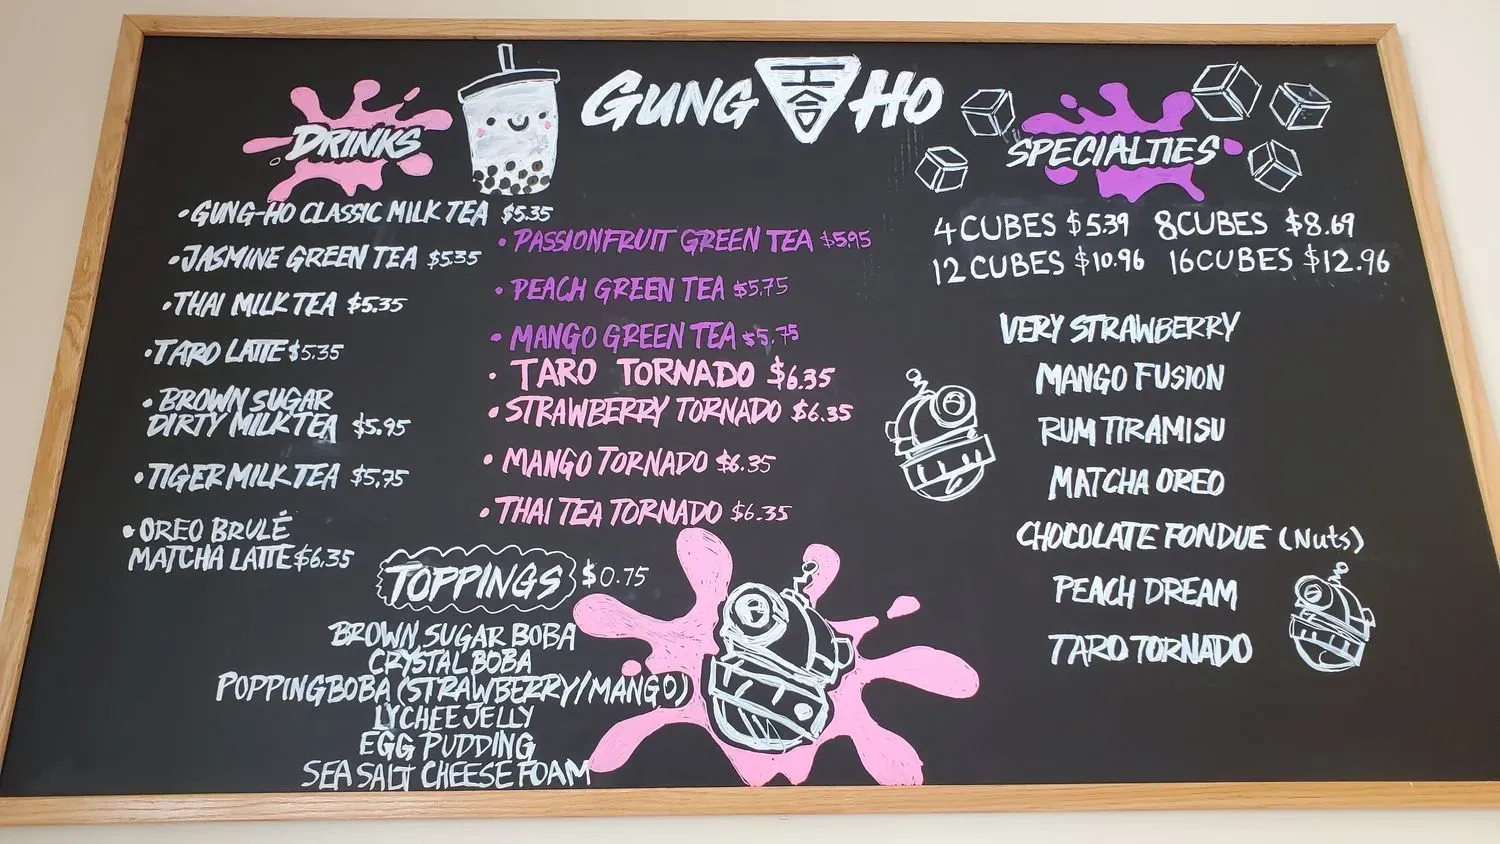 GUNG HO
DRINKS
• GUNG-HO CLASSIC MILK TEA $5.35
• JASMINE GREEN TEA $5.35
• THAI MILK TEA $5.35
• TARO LATTE $5.35
• BROWN SUGAR
DIRTY MILK TEA $5.95
• TIGER MILK TEA $5.75
• OREO BRULÉ
MATCHA LATTE $6.35
• PASSIONFRUIT GREEN TEA $5.95
• PEACH GREEN TEA $5.75
• MANGO GREEN TEA $5.75
• TARO TORNADO $6.35
• STRAWBERRY TORNADO $6.35
• MANGO TORNADO $6.35
• THAI TEA TORNADO $6.35
TOPPINGS $0.75
BROWN SUGAR BOBA
CRYSTAL BOBA
POPPING BOBA (STRAWBERRY/MANGO)
LYCHEE JELLY
EGG PUDDING
SEA SALT CHEESE FOAM
SPECIALTIES
4 CUBES $5.39 8 CUBES $8.69
12 CUBES $10.96 16 CUBES $12.96
VERY STRAWBERRY
MANGO FUSION
RUM TIRAMISU
MATCHA OREO
CHOCOLATE FONDUE (Nuts)
PEACH DREAM
TARO TORNADO